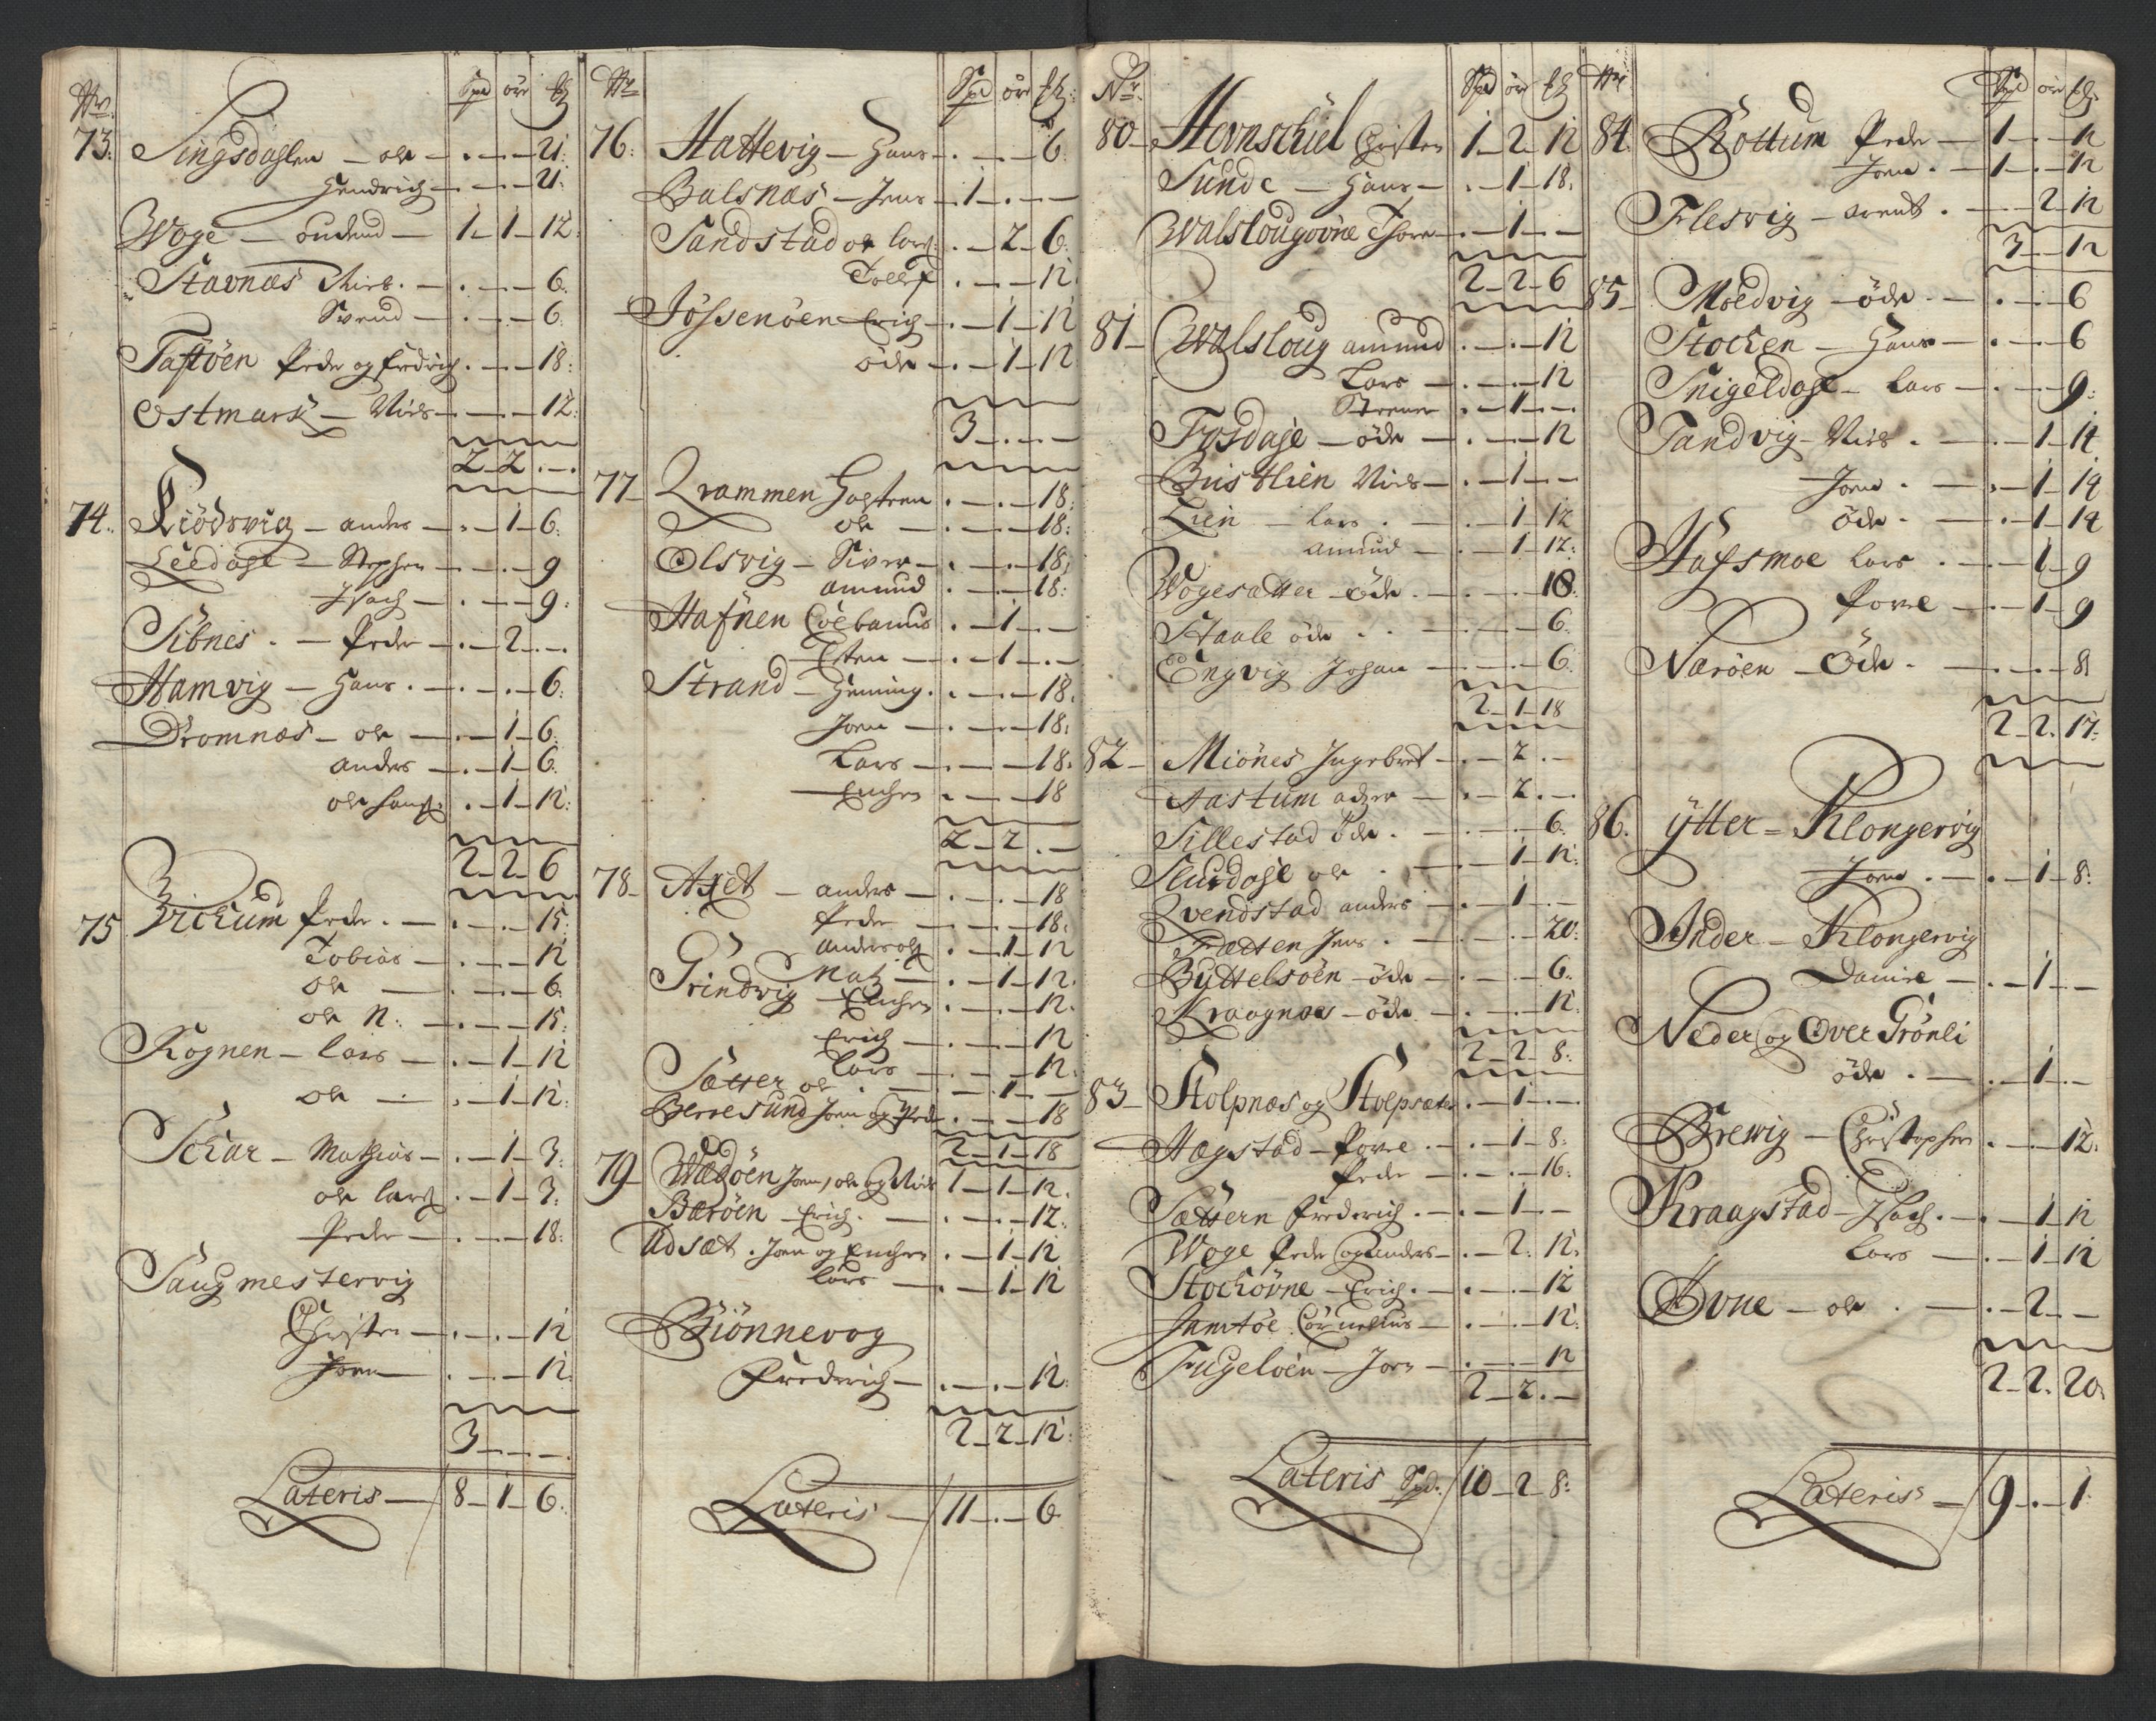 No. Spd øre lb
73. Singsdahlen - ole - . - . - 21:
Hendrich - . - . - 21:
Woge - oudend - 1 - 1 - 12
Stavnæs Niels . - . - . - 6.
Svend - . - . - 6.
Taftöen Peder og fredrich . - . - 18:
Ostmark - Niels - . - . - 12:
2 - 2 . - .
74. Kiödsvig - anders - . - 1 - 6.
Leedahl - Stephen - . - . - 9
Isach - . - . - 9:
Sibnes . - Peder - . - 2 . - .
Hamvig - Hans . - . - . - 6:
Dromnæs - ole - . - 1 - 6.
anders - . - 1 - 6.
ole hansß: . - 1 - 12:
2 - 2 - 6
75. Vickum Peder . - . - . - 15:
Tobias - . - . - 12
ole - . - . - 6.
ole N: - . - . - 15:
Rognen - lars - . - 1 - 12
ole - . - 1 - 12:
Schar - Mathias - . - 1 - 3:
ole larß . - 1 - 3:
Peder - . - . - 18:
Saugmestervig
Christen - . - . - 12
Joen - . - . - 12:
3 - . - .
Lateris - 8 - 1 - 6.
No Spd øre lb:
76. Hattevig - Hans - . - . - 6.
Balsnæs - Jens - 1 - . - -
Sandstad ole larß . - 2 - 6.
Tollef . - . - 12.
Jössenöen Erich - . - 1 - 12
öde - . - 1 - 12
3 - . - . -
77 - Krammen Hagtren . - . - 18:
ole - . - . - 18:
Olsvig - Siver - . - . - 18:
amund . - . - 18:
Hafnen Coebanus . - 1 - . -
Esten - . - 1 - . -
Strand - Henning . . - . - 18.
Joen - . - . - 18.
Lars - . - . - 18.
Enchen . - . - 18
2 - 2 . -
78 - Axet - anders - . - . - 18
Peder - . - . - 18.
anders olß . - 1 - 12
Grindvig Matz - . - 1 - 12.
Enchen . - . - 12.
Erich - . - . - 12
Lars - . - . - 12.
Sætter ole . - . - 1 - . -
Berresund Joen og Peder . - . - 18
2 - 1 - 18
79 - Wædöen Joen, ole og Niels 1 - 1 - 12.
Baröen - Erich . - . - . - 12.
Udsæt . Joen og Enchen . - 1 - 12
lars - . - 1 - 12
Biönnevog
Frederich - . - . - 12:
2 - 2 - 12:
Lateris - 11 - . - 6
Nr. Spd øre lb
80 - Hernschiel Christen 1 - 2 - 12
Sunde - Hans - . - 1 - 18.
Walslougovne Thore - . - 1 - . -
2 - 2 - 6
81 - Walsloug amund . - . - 12
Lars - . - . - 12
. - 1 - . -
Fysdaje - öde - . - . - 12
Bustlien Niels - . - 1 - . -
Lien - lars . - . - 1 - 12
amund - . - 1 - 12:
Wogesætter - öde . - . - . - 18.
Staale öde . . - . - . - 6.
Engvig Johan - . - . - 6.
2 - 1 - 18
82 - Miönes Ingebret - . - 2 . -
Aastum - . - 2 . - .
Sillestad öde . - . - . - 6.
Slurdahl ole . - . - 1 - 12.
Qvendstad anders - . - 1 - . -
Grætten Jens . - . - . - 20:
Byttelsöen - öde - . - . - 6.
Kraagnæs - öde . - . - . - 12:
2 - 2 - 8:
83 - Stolpnæs og Stolpsæter . - 1 - . -
Hægstad - Povel . - . - 1 - 8:
Peder - . - . - 16.
Sættern Frederich . - . - 1 - . -
Woge Peder og anders - . - 2. 12.
Stochövne - Erich . - . - . - 12
Jamtöe Cornelius - . - . - 12:
Fugelöen - Joen - . - . - 12
2 - 2 . -
Lateris Spd. 10 - 2 - 8:
No Spd øre lb.
84. Rottum Peder - 1 - . - 12
Joen . - 1 - . - 12
Flesvig - arent . - . - 2 - 12
3 - . - 12
85 - Moldvig - öde . - . - . - 6
Stochen - Hans - . - . - 6
Snigeldahl - Lars - . - . - 9:
Sandvig - Niels . - . - 1 - 14
Joen . - . - 1 - 14
öde . - . - 1 - 14
Hafsmoe Lars . - . - 1 - 9
Povel - . - 1 - 9
Naröen - Öde . - . - . - 8
2 - 2. 17:
86. ÿtter - Klongervig
Joen . - . - 1 - 8:
Inder - Klongervig
Daniel - . - 1 - . -
Neder og Over Grönli
öde . - . - 1 - . -
Brewig - Christopher . - . - 12:
Kraagstad - Isach . - . - 1 - 12
Lars - . - 1 - 12
Ovne - ole . - . - 2 - . -
2 - 2. 20.
Lateris - 9 - . - 1: